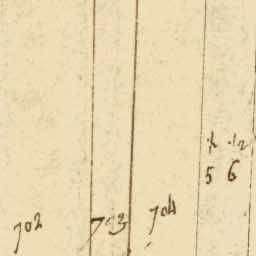 5 6
702 703 704